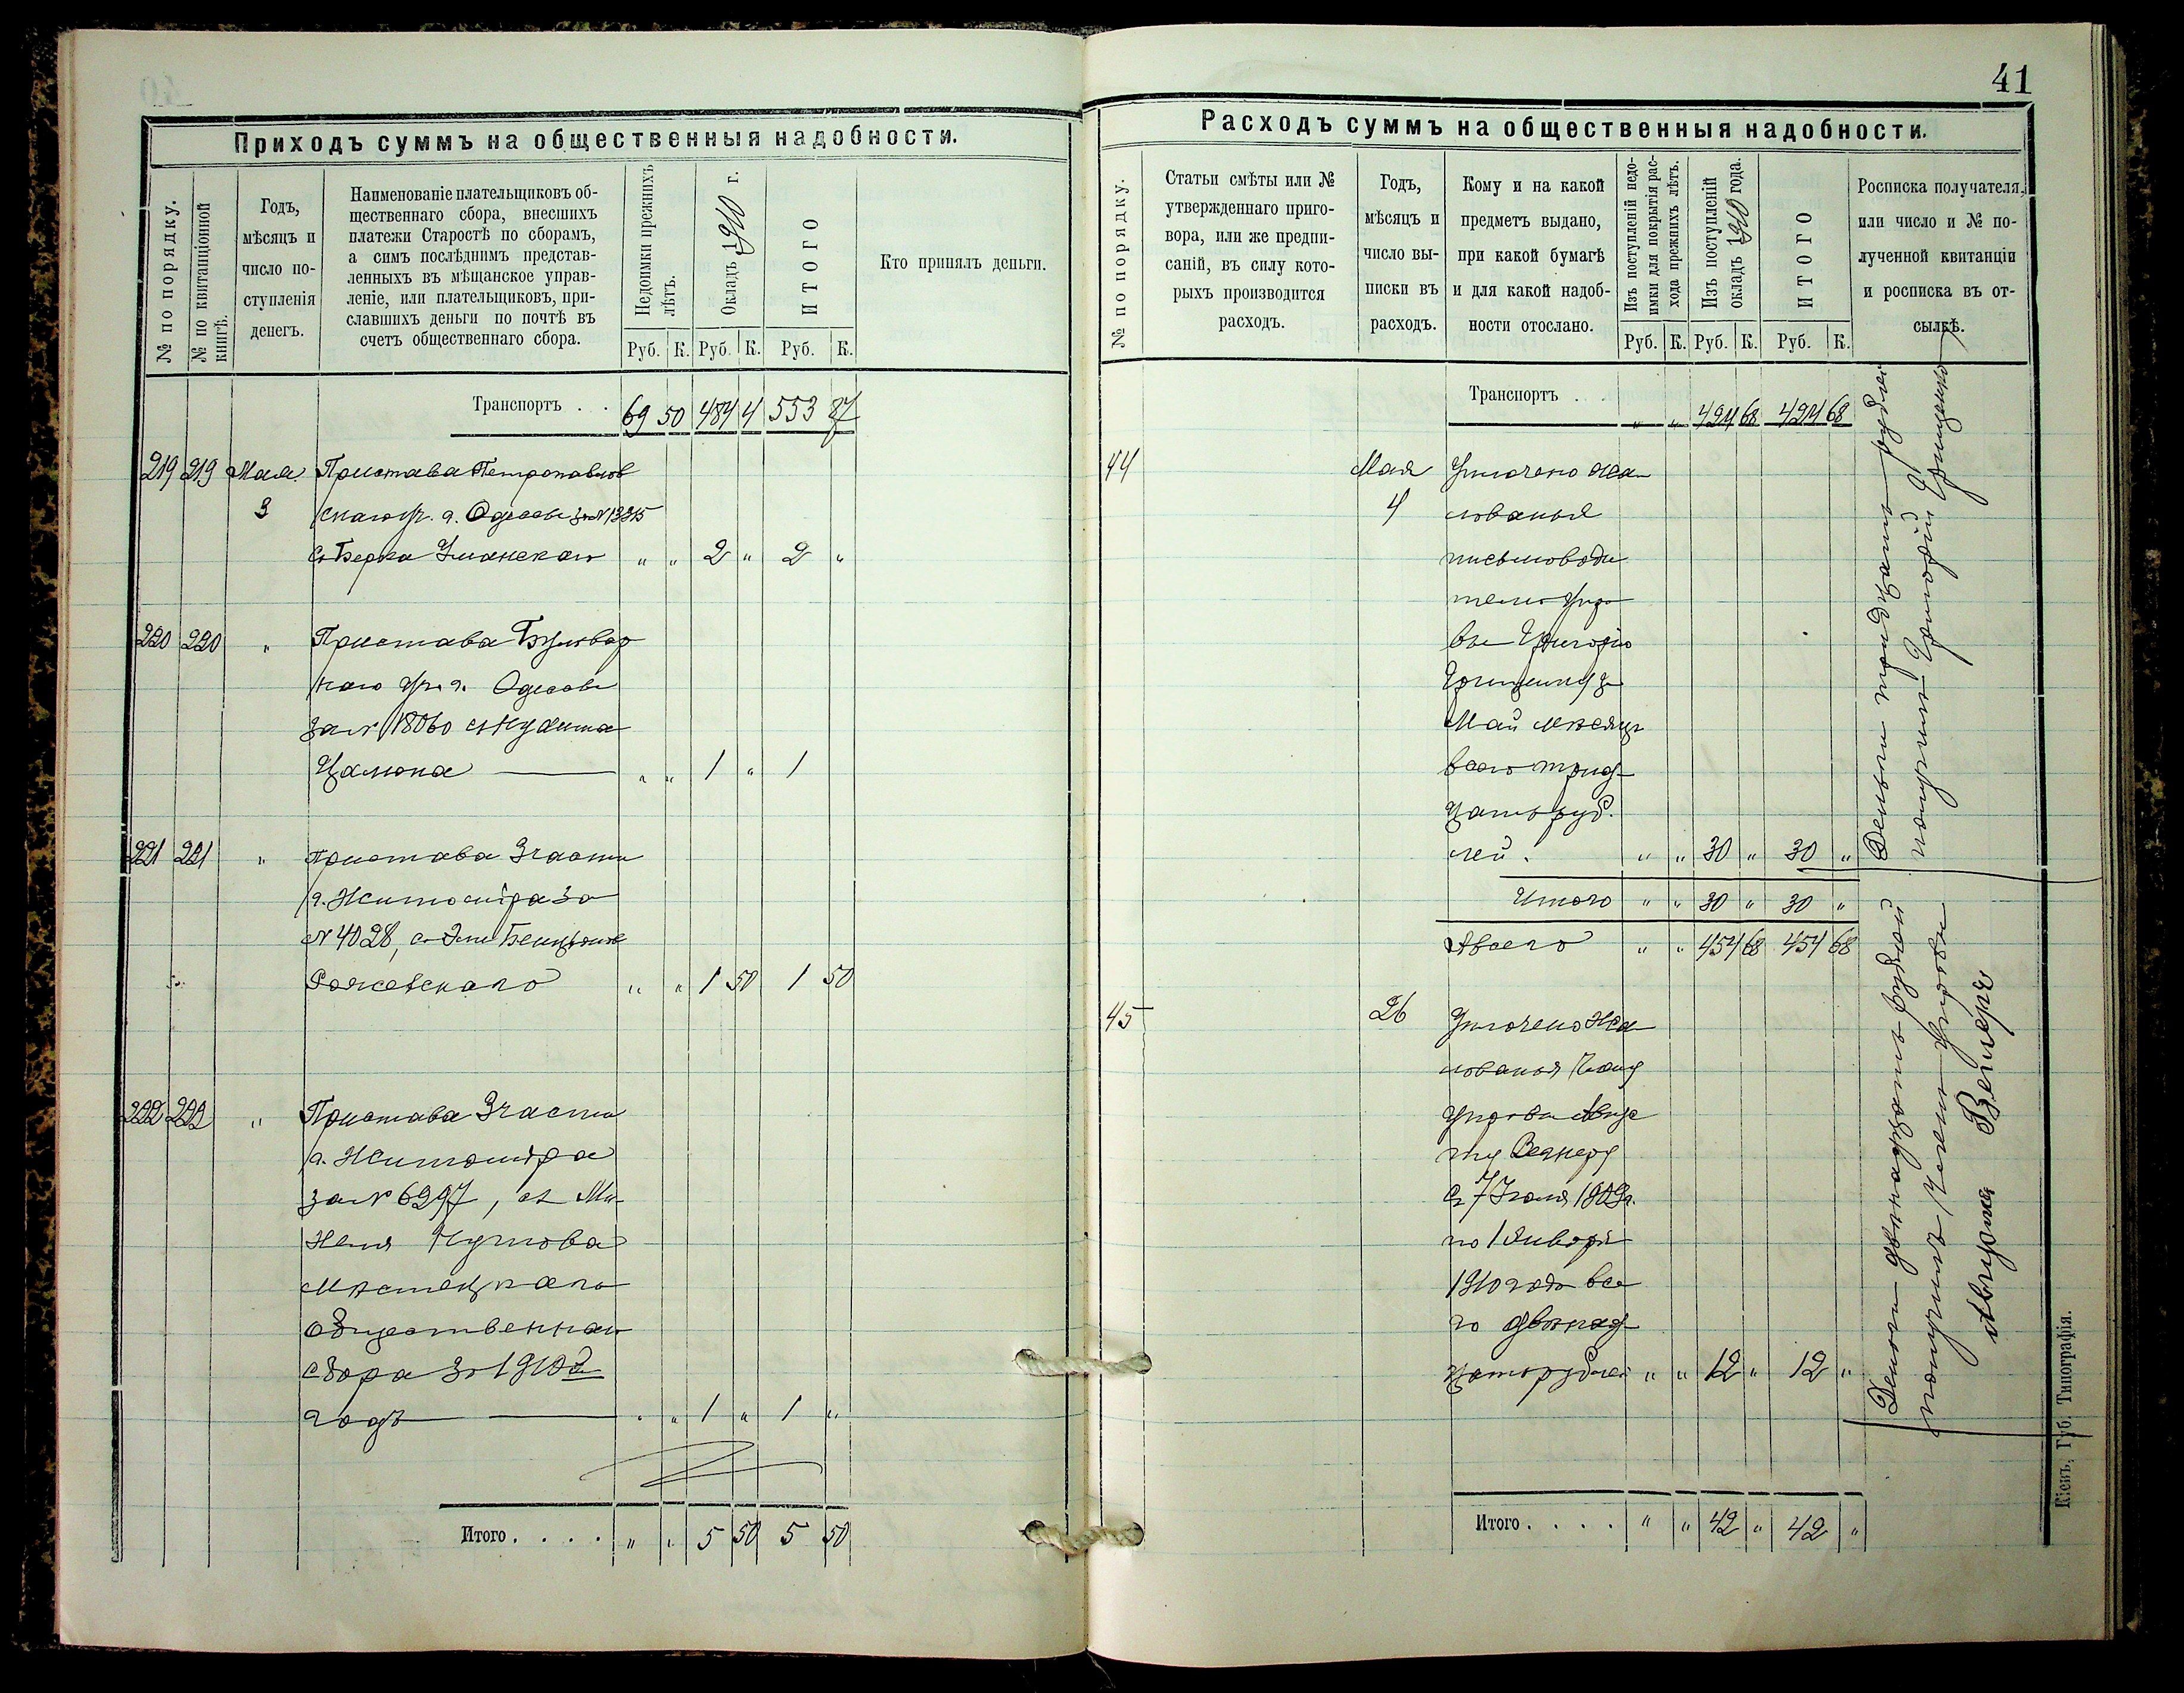 41
Приходъ суммъ на общественныя надобности.
№ по порядку.
№ по квитанціонной книгѣ.
Годъ,
мѣсяцъ и
число по-
ступленія
денегъ.
Наименованіе плательщиковъ об-
щественнаго сбора, внесшихъ
платежи Старостѣ по сборамъ,
а симъ послѣднимъ представ-
ленныхъ въ мѣщанское управ-
леніе, или плательщиковъ, при-
славшихъ деньги по почтѣ въ
счетъ общественнаго сбора.
Недоимки прежнихъ
лѣтъ.
Окладъ 1910 г.
ИТОГО
Кто принялъ деньги.
Руб. К. Руб. К. Руб. К.
Транспортъ . . 69 50 484 4 553 87
219 219 Мая Пристава Петропавлов
3 скаго уч. г. Одессы за № 13315
съ Берка Уманскаго " " 2 " 2 "
220 220 " Пристава Бульвар
наго уч. г. Одессы
за № 18060 съ
" " 1 " 1
221 221 " Пристава 3 части
г. Житомира за
№ 4028, съ
" " 1 50 1 50
222 222 " Пристава 3 части
г. Житомира
за № 6297, съ
общественнаго
сбора за 1910й
годъ " " 1 " 1 "
Итого . . . . " " 5 50 5 50
Расходъ суммъ на общественныя надобности.
№ по порядку.
Статьи смѣты или №
утвержденнаго приго-
вора, или же предпи-
саній, въ силу кото-
рыхъ производится
расходъ.
Годъ,
мѣсяцъ и
число вы-
писки въ
расходъ.
Кому и на какой
предметъ выдано,
при какой бумагѣ
и для какой надоб-
ности отослано.
Изъ поступленій недо-
имки для покрытія рас-
хода прежнихъ лѣтъ.
Изъ поступленій
окладъ 1910 года.
ИТОГО
Росписка получателя,
или число и № по-
лученной квитанціи
и росписка въ от-
сылкѣ.
Руб. К. Руб. К. Руб. К.
Транспортъ . . " " 424 68 424 68
44 Мая Уплочено жа-
4 лованья
письмоводи
телю Упра
вы Григорію
Грищенку за
Май мѣсяцъ
всего трид-
цать руб-
лей. " " 30 " 30 "
Итого " " 30 " 30 "
А всего " " 454 68 454 68
Деньги тридцать рублей
получилъ Григорій Грищенко
45 26 Уплочено жа-
лованья Члену
Управы Авгус
ту Вегнеру
съ 7 Іюля 1909 г.
по 1 Января
1910 года все
го двѣнад-
цать рублей " " 12 " 12 "
Деньги двѣнадцать рублей
получилъ Членъ Управы
Августъ Вегнеръ
Итого . . . . " " 42 " 42 "
Кіевъ, Губ. Типографія.